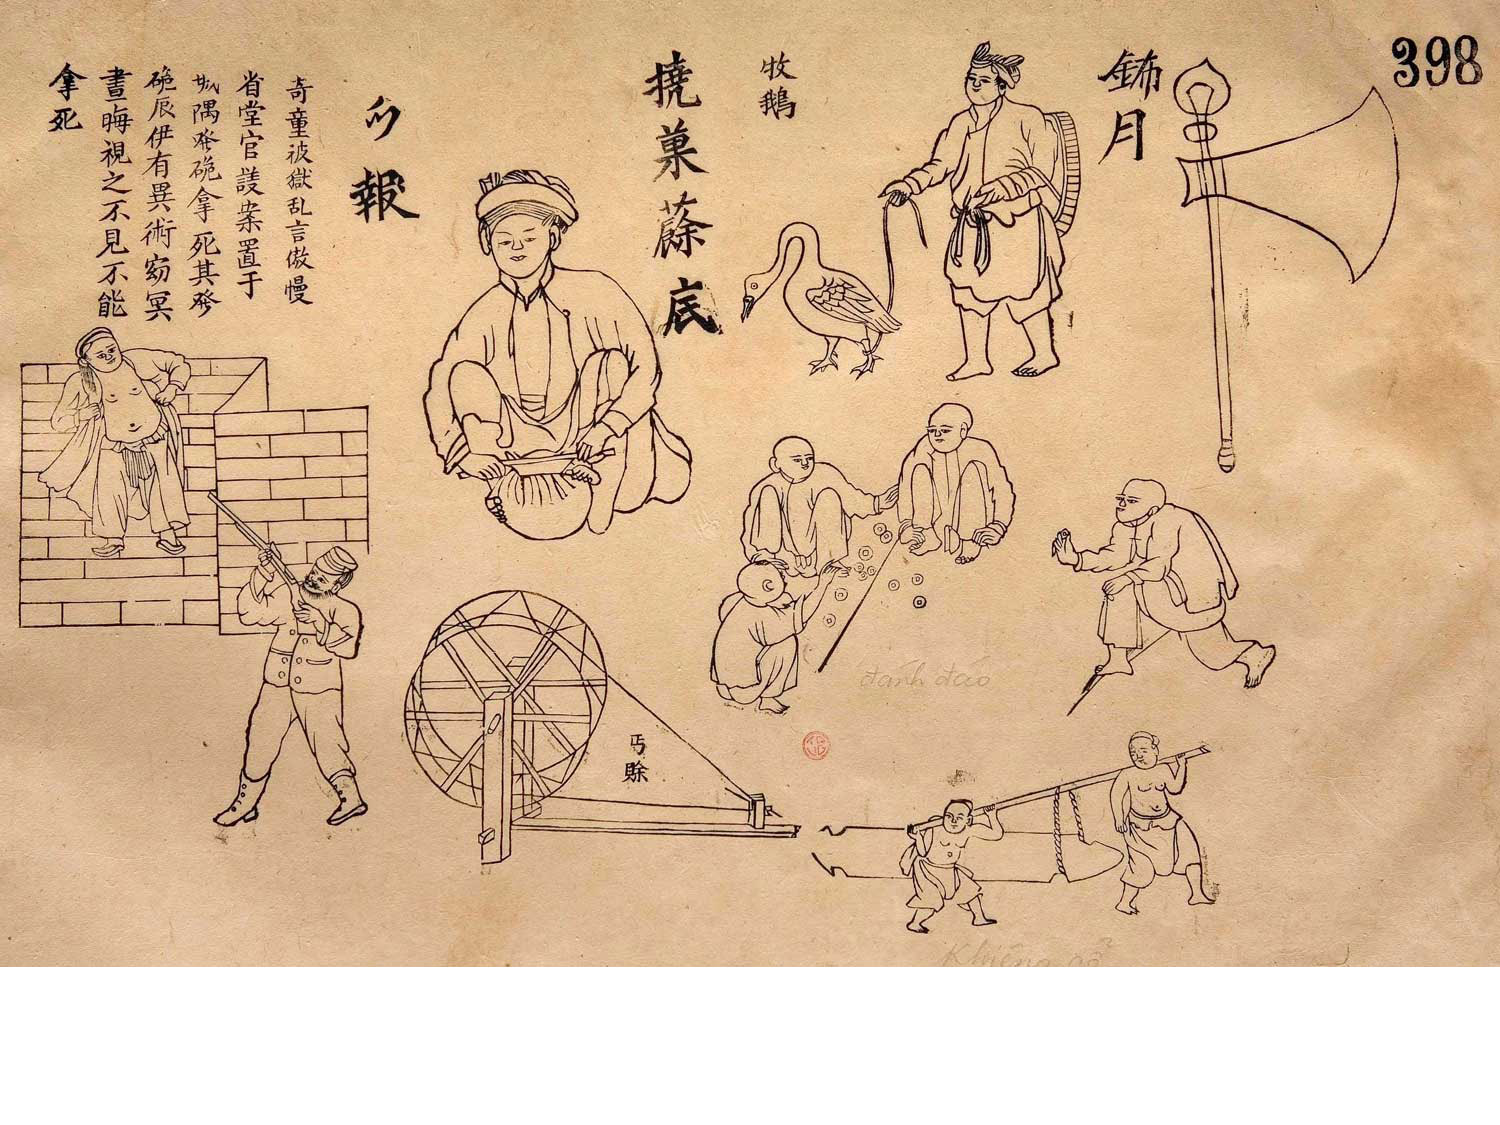 398
鈽月
牧鵝
撓菓蒢底
奇童被獄乱言傲慢
省堂官議案置于
隅發硊拿死其發
硊辰伊有異術窈冥
晝晦視之不見不能
拿死
丐賒
đánh đáo
Khiêng gỗ